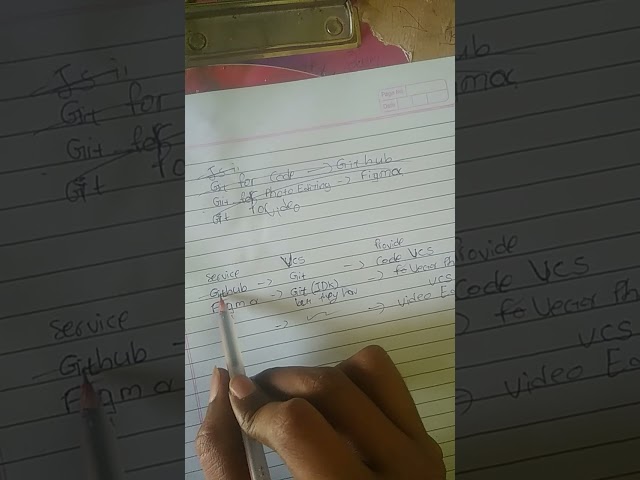 Page No.
Date
Git for Code → Github
Git for Photo Editing → Figma
Git for video
service VCS Provide
Github → Git → Code VCS
Figma → Git (IDK) → fo Vector Ph
VCS
→ → video Ed